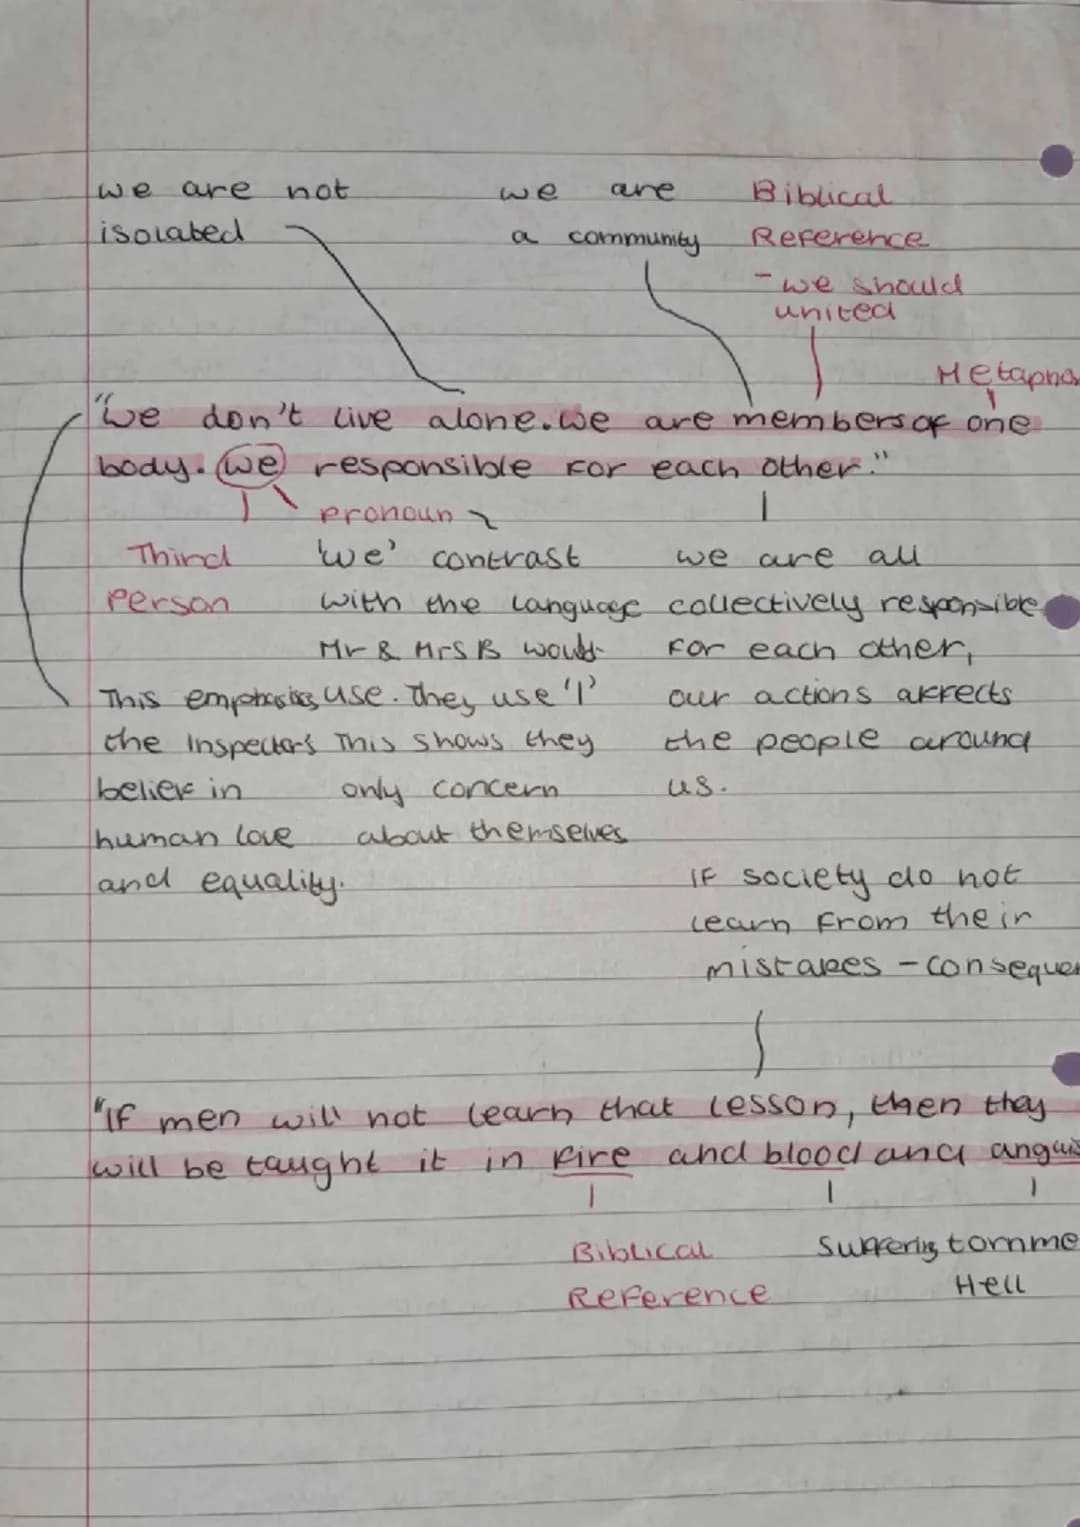 we are not
isolated
we are
a community
Biblical
Reference
- we should
united
Metapho
"We don't live alone. we are members of one
body. we responsible for each other."
pronoun
Third
person
'we' contrast
with the language
Mr & Mrs B would
use. They use 'I'
This shows they
only concern
about themselves
we are all
collectively responsible
for each other,
our actions affects
the people around
us.
This emphasises
the Inspectors
belief in
human love
and equality.
If society do not
learn from their
mistakes - consequen
"If men will not learn that lesson, then they
will be taught it in fire and blood and anguis
Biblical
Reference
Suffering tornme
Hell